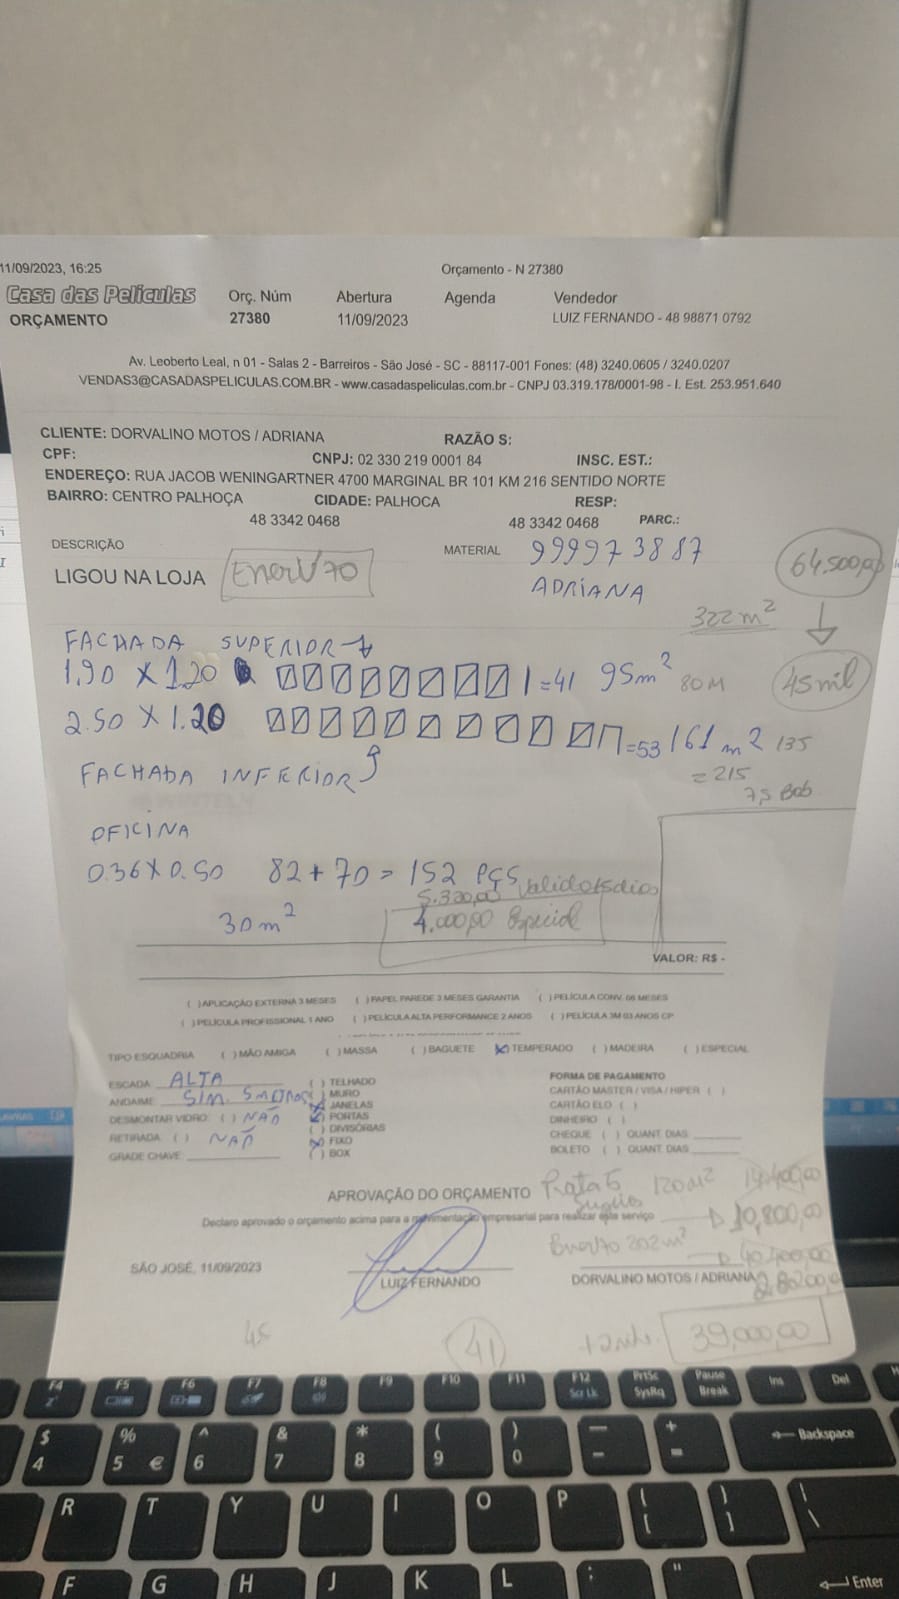 11/09/2023, 16:25
Orçamento - N 27380
Casa das Películas
Orç. Núm
Abertura
Agenda
Vendedor
ORÇAMENTO
27380
11/09/2023
LUIZ FERNANDO - 48 98871 0792
Av. Leoberto Leal, n 01 - Salas 2 - Barreiros - São José - SC - 88117-001 Fones: (48) 3240.0605 / 3240.0207
VENDAS3@CASADASPELICULAS.COM.BR - www.casadaspeliculas.com.br - CNPJ 03.319.178/0001-98 - I. Est. 253.951.640
CLIENTE: DORVALINO MOTOS / ADRIANA
RAZÃO S:
CPF:
CNPJ: 02 330 219 0001 84
INSC. EST.:
ENDEREÇO: RUA JACOB WENINGARTNER 4700 MARGINAL BR 101 KM 216 SENTIDO NORTE
BAIRRO: CENTRO PALHOÇA
CIDADE: PALHOCA
RESP:
48 3342 0468
48 3342 0468
PARC.:
DESCRIÇÃO
MATERIAL
99997 3887
LIGOU NA LOJA
EnerV70
ADRIANA
64.500,00
322 m²
45 mil
FACHADA SUPERIOR
1.90 X 1.20
=41 95m² 80M
2.50 X 1.20
=53 161 m2 135
FACHADA INFERIOR
= 215
7,5 Bob
OFICINA
0.36 X 0.50 82+70 = 152 PÇS
5.320,00 Valido 15 dias
30 m²
4.000,00 Especial
VALOR: R$ -
( )APLICAÇÃO EXTERNA 3 MESES ( )PAPEL PAREDE 3 MESES GARANTIA ( )PELÍCULA CONV. 06 MESES
( )PELÍCULA PROFISSIONAL 1 ANO ( )PELÍCULA ALTA PERFORMANCE 2 ANOS ( )PELÍCULA 3M 03 ANOS CP
TIPO ESQUADRIA ( )MÃO AMIGA ( )MASSA ( )BAGUETE (X)TEMPERADO ( )MADEIRA ( )ESPECIAL
ESCADA ALTA
( )TELHADO
FORMA DE PAGAMENTO
ANDAIME: SIM. 5 METROS
( )MURO
CARTÃO MASTER / VISA / HIPER ( )
(X)JANELAS
CARTÃO ELO ( )
DESMONTAR VIDRO: ( ) NÃO
(X)PORTAS
DINHEIRO ( )
( )DIVISÓRIAS
RETIRADA: ( ) NÃO
CHEQUE ( ) QUANT. DIAS
(X)FIXO
BOLETO ( ) QUANT. DIAS
GRADE CHAVE:
( )BOX
APROVAÇÃO DO ORÇAMENTO
Prata 5 120m² 14.400,00
Declaro aprovado o orçamento acima para a movimentação empresarial para realizar este serviço
10,800,00
Enerv70 202m²
40.400,00
SÃO JOSÉ, 11/09/2023
LUIZ FERNANDO
DORVALINO MOTOS / ADRIANA
28200,00
45
41
39,000,00
F4
F5
F6
F7
F8
F9
F10
F11
F12
Scr Lk
PrtSc
SysRq
Pause
Break
Ins
Del
$ 4
% 5 €
^ 6
& 7
* 8
( 9
) 0
Backspace
R
T
Y
U
I
O
P
F
G
H
J
K
L
Enter